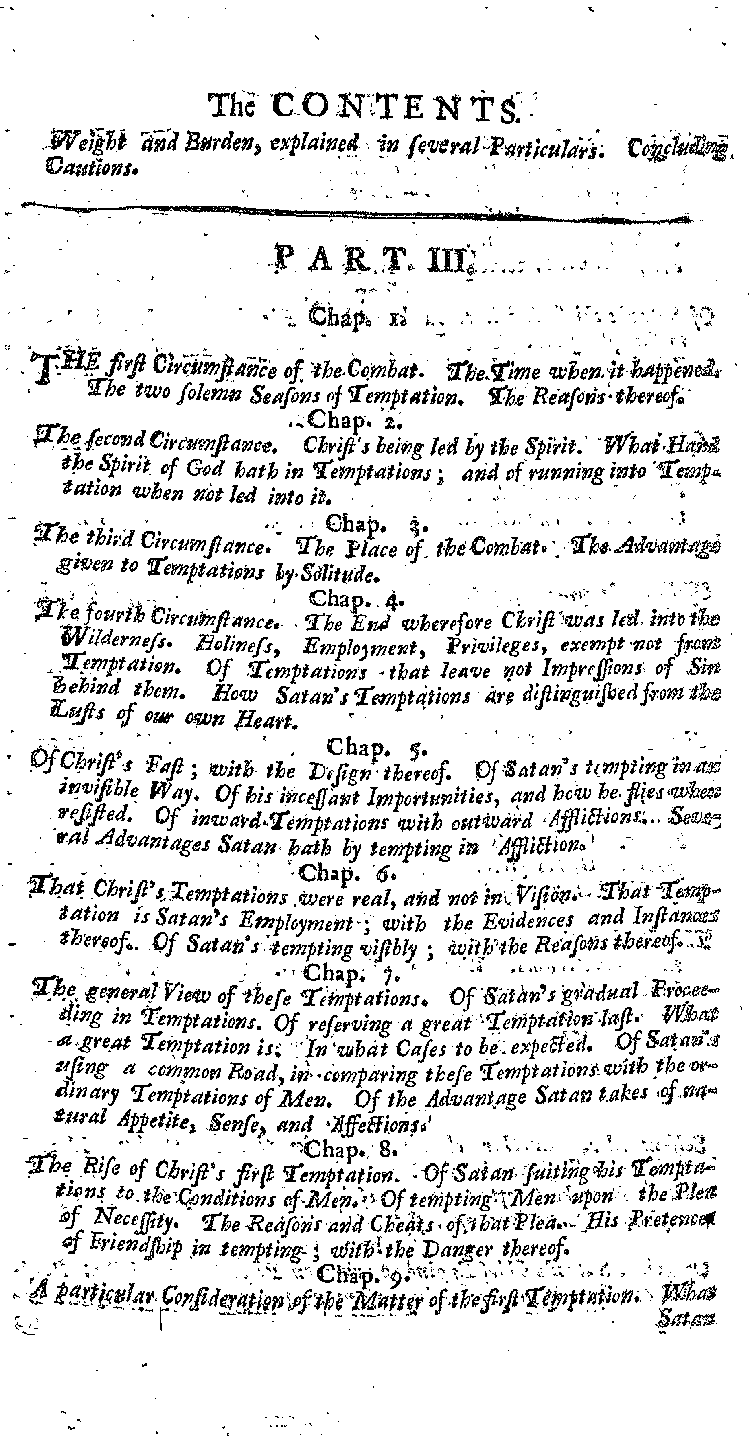 The CONTENTS.
Weight and Burden, explained in ſeveral Particulars. Concluding
Cautions.
PART III.
Chap. 1.
THE firſt Circumſtance of the Combat. The Time when it happened.
The two ſolemn Seaſons of Temptation. The Reaſons thereof.
Chap. 2.
The ſecond Circumſtance. Chriſt's being led by the Spirit. What Hand
the Spirit of God hath in Temptations; and of running into Temp-
tation when not led into it.
Chap. 3.
The third Circumſtance. The Place of the Combat. The Advantage
given to Temptations by Solitude.
Chap. 4.
The fourth Circumſtance. The End wherefore Chriſt was led into the
Wilderneſs. Holineſs, Employment, Privileges, exempt not from
Temptation. Of Temptations that leave not Impreſſions of Sin
behind them. How Satan's Temptations are diſtinguiſhed from the
Luſts of our own Heart.
Chap. 5.
Of Chriſt's Faſt; with the Deſign thereof. Of Satan's tempting in an
inviſible Way. Of his inceſſant Importunities, and how he flies when
reſiſted. Of inward Temptations with outward Afflictions. Seve-
ral Advantages Satan hath by tempting in Affliction.
Chap. 6.
That Chriſt's Temptations were real, and not in Viſion. That Temp-
tation is Satan's Employment; with the Evidences and Inſtances
thereof. Of Satan's tempting viſibly; with the Reaſons thereof.
Chap. 7.
The general View of theſe Temptations. Of Satan's gradual Procee-
ding in Temptations. Of reſerving a great Temptation laſt. What
a great Temptation is. In what Caſes to be expected. Of Satan's
uſing a common Road, in comparing theſe Temptations with the or-
dinary Temptations of Men. Of the Advantage Satan takes of na-
tural Appetite, Senſe, and Affections.
Chap. 8.
The Riſe of Chriſt's firſt Temptation. Of Satan ſuiting his Tempta-
tions to the Conditions of Men. Of tempting Men upon the Plea
of Neceſſity. The Reaſons and Cheats of that Plea. His Pretences
of Friendſhip in tempting; with the Danger thereof.
Chap. 9.
A particular Conſideration of the Matter of the firſt Temptation. What
Satan